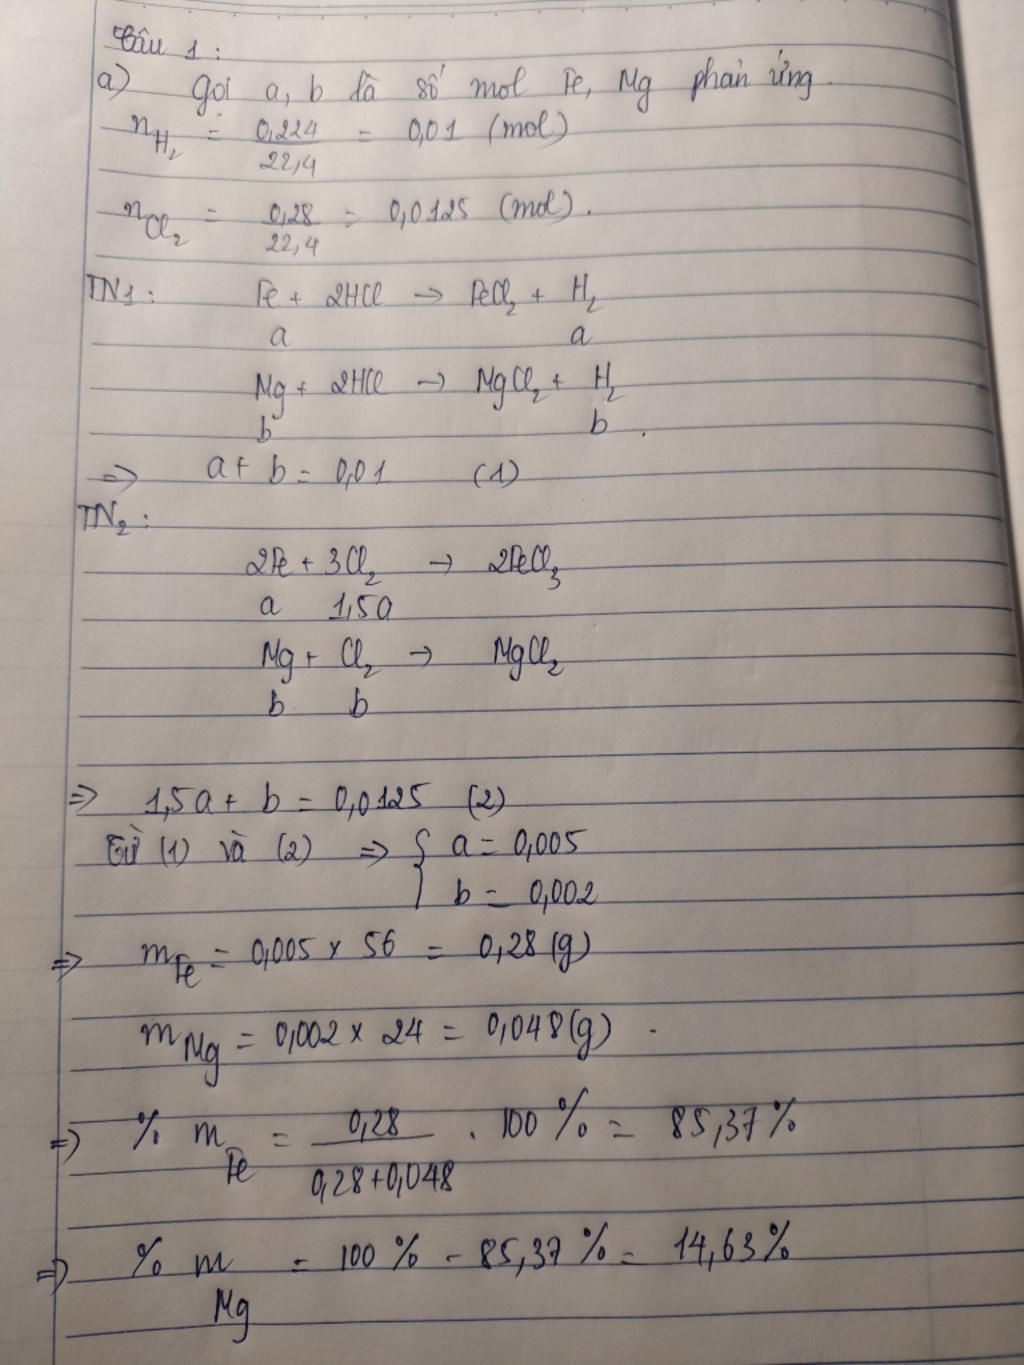 Câu 1 :
a) Gọi a, b là số mol Fe, Mg phản ứng.
n_H₂ = 0,224/22,4 = 0,01 (mol)
n_Cl₂ = 0,28/22,4 = 0,0125 (mol).
TN1 : Fe + 2HCl → FeCl₂ + H₂
a a
Mg + 2HCl → MgCl₂ + H₂
b b .
=> a + b = 0,01 (1)
TN₂ :
2Fe + 3Cl₂ → 2FeCl₃
a 1,5a
Mg + Cl₂ → MgCl₂
b b
=> 1,5a + b = 0,0125 (2)
Từ (1) và (2) => { a = 0,005
b = 0,002
=> m_Fe = 0,005 x 56 = 0,28 (g)
m_Mg = 0,002 x 24 = 0,048 (g) .
=> % m_Fe = 0,28/0,28+0,048 . 100 % = 85,37 %
=> % m_Mg = 100 % - 85,37 % = 14,63 %